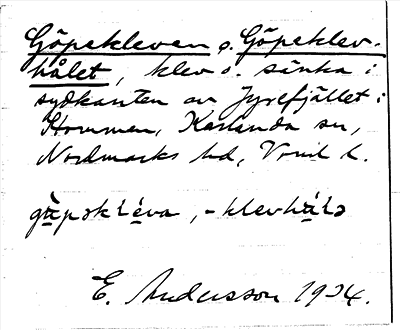 Göpekleven o. Göpeklev-
hålet, klev o. sänka i
sydkanten av Jyrefjället i
Stommen, Karlanda sn,
Nordmarks hd, Vrml l.
gäpəkléva, -klevhålə
E. Andersson 1934.